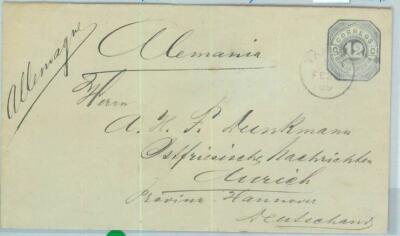 Allemagne
Alemania
CORREOS
12
FEB
Herrn
A. H. F. Dunkmann
Ostfriesische Nachrichten
Aurich
Provinz Hannover
Deutschland